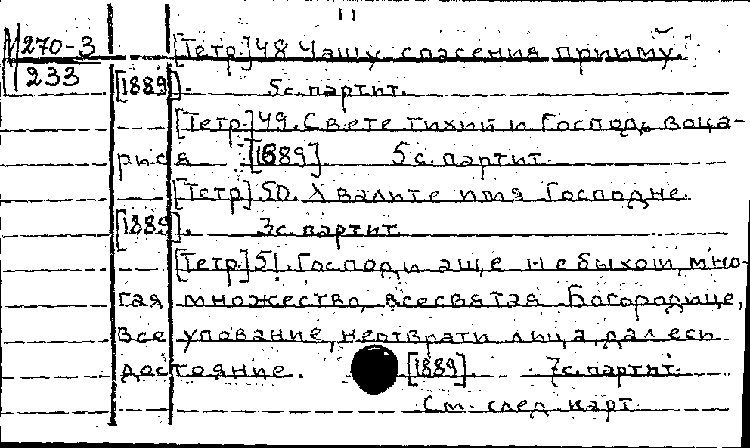 11
270-3 [Тетр.] 48 Чашу спасения прииму.
233 [1889]. 5с. партит.
[Тетр.] 49. Свете тихий и Господь воца-
рися [1889] 5с. партит.
[Тетр.] 50. Хвалите имя Господне.
[1889]. 3с. партит.
[Тетр.] 51. Господи аще не быхом, мно-
гая множество, всесвятая Богородице,
все упование, не отврати лица, дал еси
достояние. [1889]. 7с. партит.
См. след карт